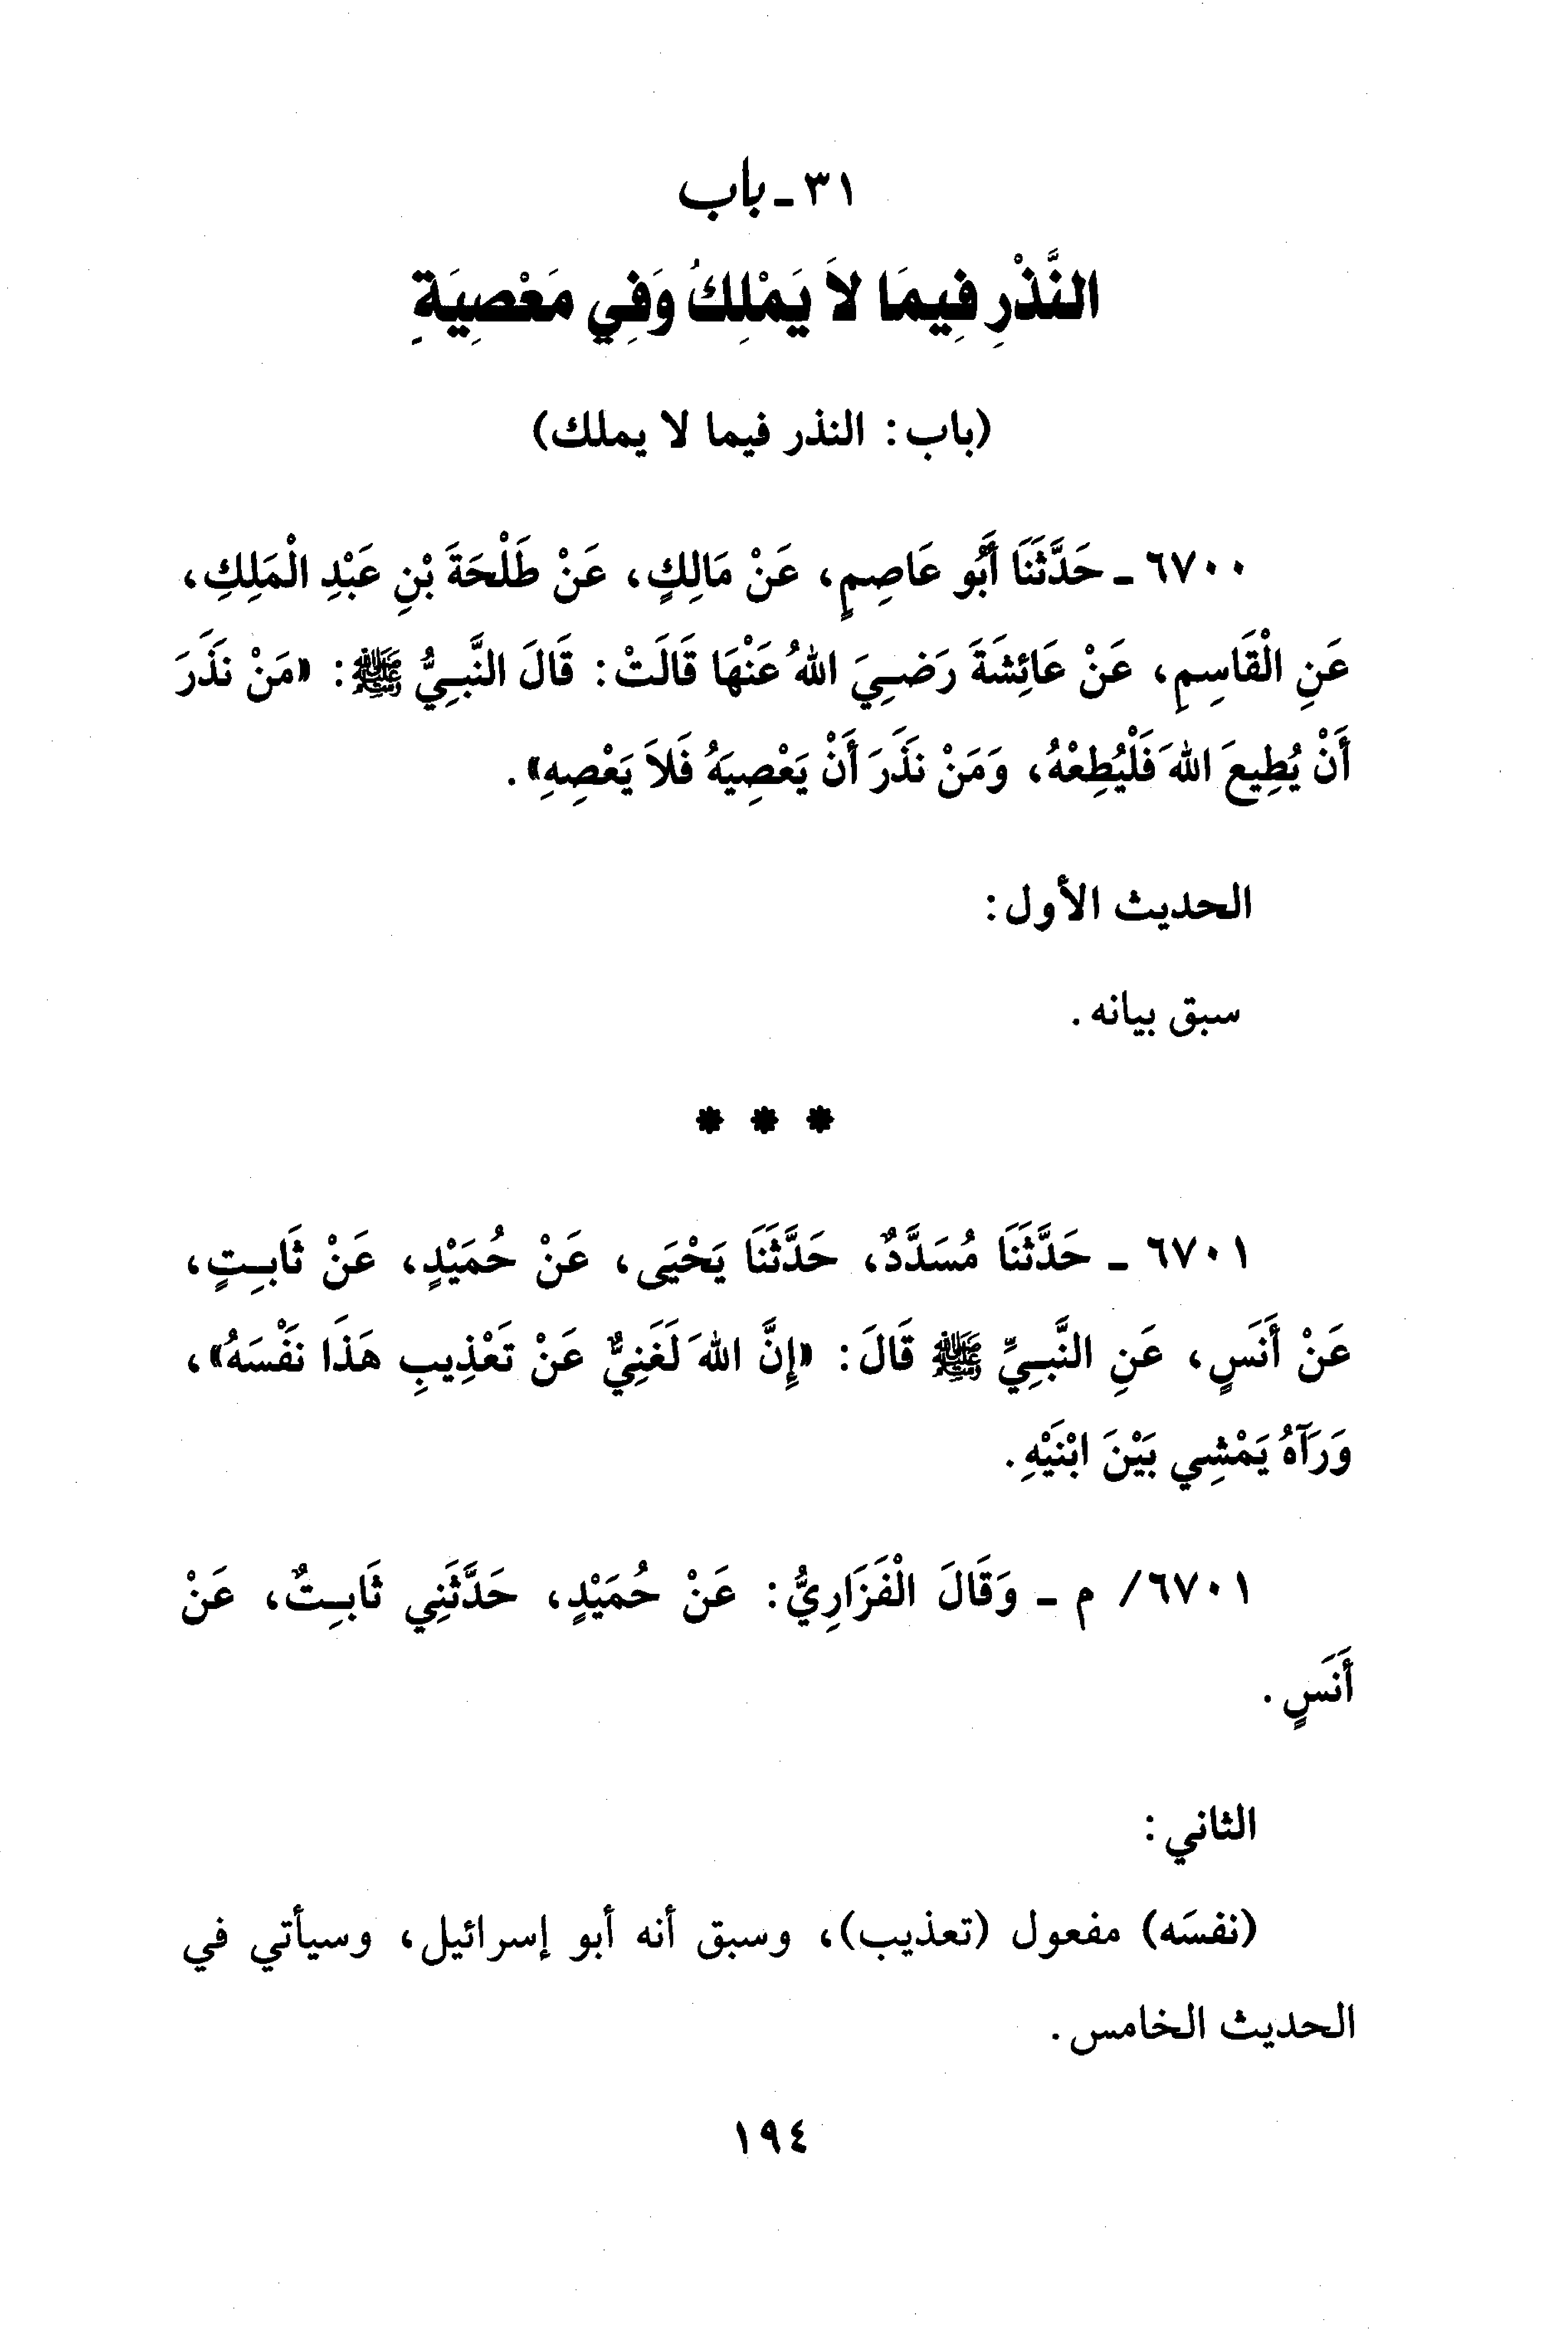 ٣١ - باب
النَّذْرِ فِيمَا لاَ يَمْلِكُ وَفِي مَعْصِيَةٍ
(باب: النذر فيما لا يملك)
٦٧٠٠ - حَدَّثَنَا أَبُو عَاصِمٍ، عَنْ مَالِكٍ، عَنْ طَلْحَةَ بْنِ عَبْدِ الْمَلِكِ،
عَنِ الْقَاسِمِ، عَنْ عَائِشَةَ رَضِيَ اللهُ عَنْهَا قَالَتْ: قَالَ النَّبِيُّ ﷺ: «مَنْ نَذَرَ
أَنْ يُطِيعَ اللهَ فَلْيُطِعْهُ، وَمَنْ نَذَرَ أَنْ يَعْصِيَهُ فَلاَ يَعْصِهِ».
الحديث الأول:
سبق بيانه.
* * *
٦٧٠١ - حَدَّثَنَا مُسَدَّدٌ، حَدَّثَنَا يَحْيَى، عَنْ حُمَيْدٍ، عَنْ ثَابِتٍ،
عَنْ أَنَسٍ، عَنِ النَّبِيِّ ﷺ قَالَ: «إِنَّ اللهَ لَغَنِيٌّ عَنْ تَعْذِيبِ هَذَا نَفْسَهُ»،
وَرَآهُ يَمْشِي بَيْنَ ابْنَيْهِ.
٦٧٠١/ م - وَقَالَ الْفَزَارِيُّ: عَنْ حُمَيْدٍ، حَدَّثَنِي ثَابِتٌ، عَنْ
أَنَسٍ.
الثاني:
(نفسَه) مفعول (تعذيب)، وسبق أنه أبو إسرائيل، وسيأتي في
الحديث الخامس.
١٩٤